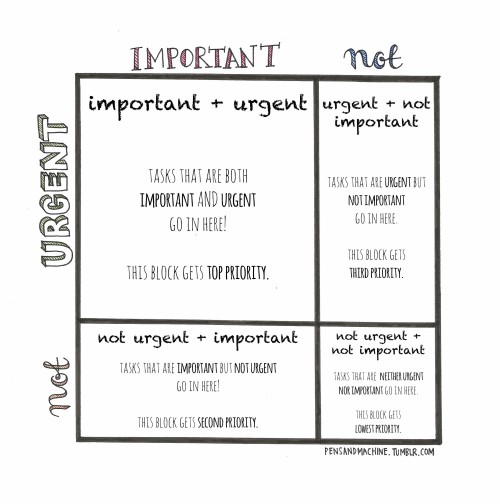 IMPORTANT not
URGENT
important + urgent
TASKS THAT ARE BOTH
IMPORTANT AND URGENT
GO IN HERE!
THIS BLOCK GETS TOP PRIORITY.
urgent + not
important
TASKS THAT ARE URGENT BUT
NOT IMPORTANT
GO IN HERE.
THIS BLOCK GETS
THIRD PRIORITY.
not
not urgent + important
TASKS THAT ARE IMPORTANT BUT NOT URGENT
GO IN HERE!
THIS BLOCK GETS SECOND PRIORITY.
not urgent +
not important
TASKS THAT ARE NEITHER URGENT
NOR IMPORTANT GO IN HERE.
THIS BLOCK GETS
LOWEST PRIORITY.
PENSANDMACHINE.TUMBLR.COM